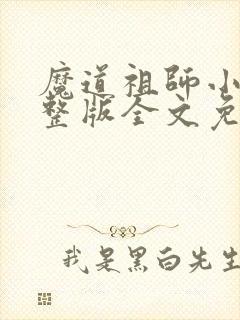 魔道祖師小
整版全文免
我是黑白先生